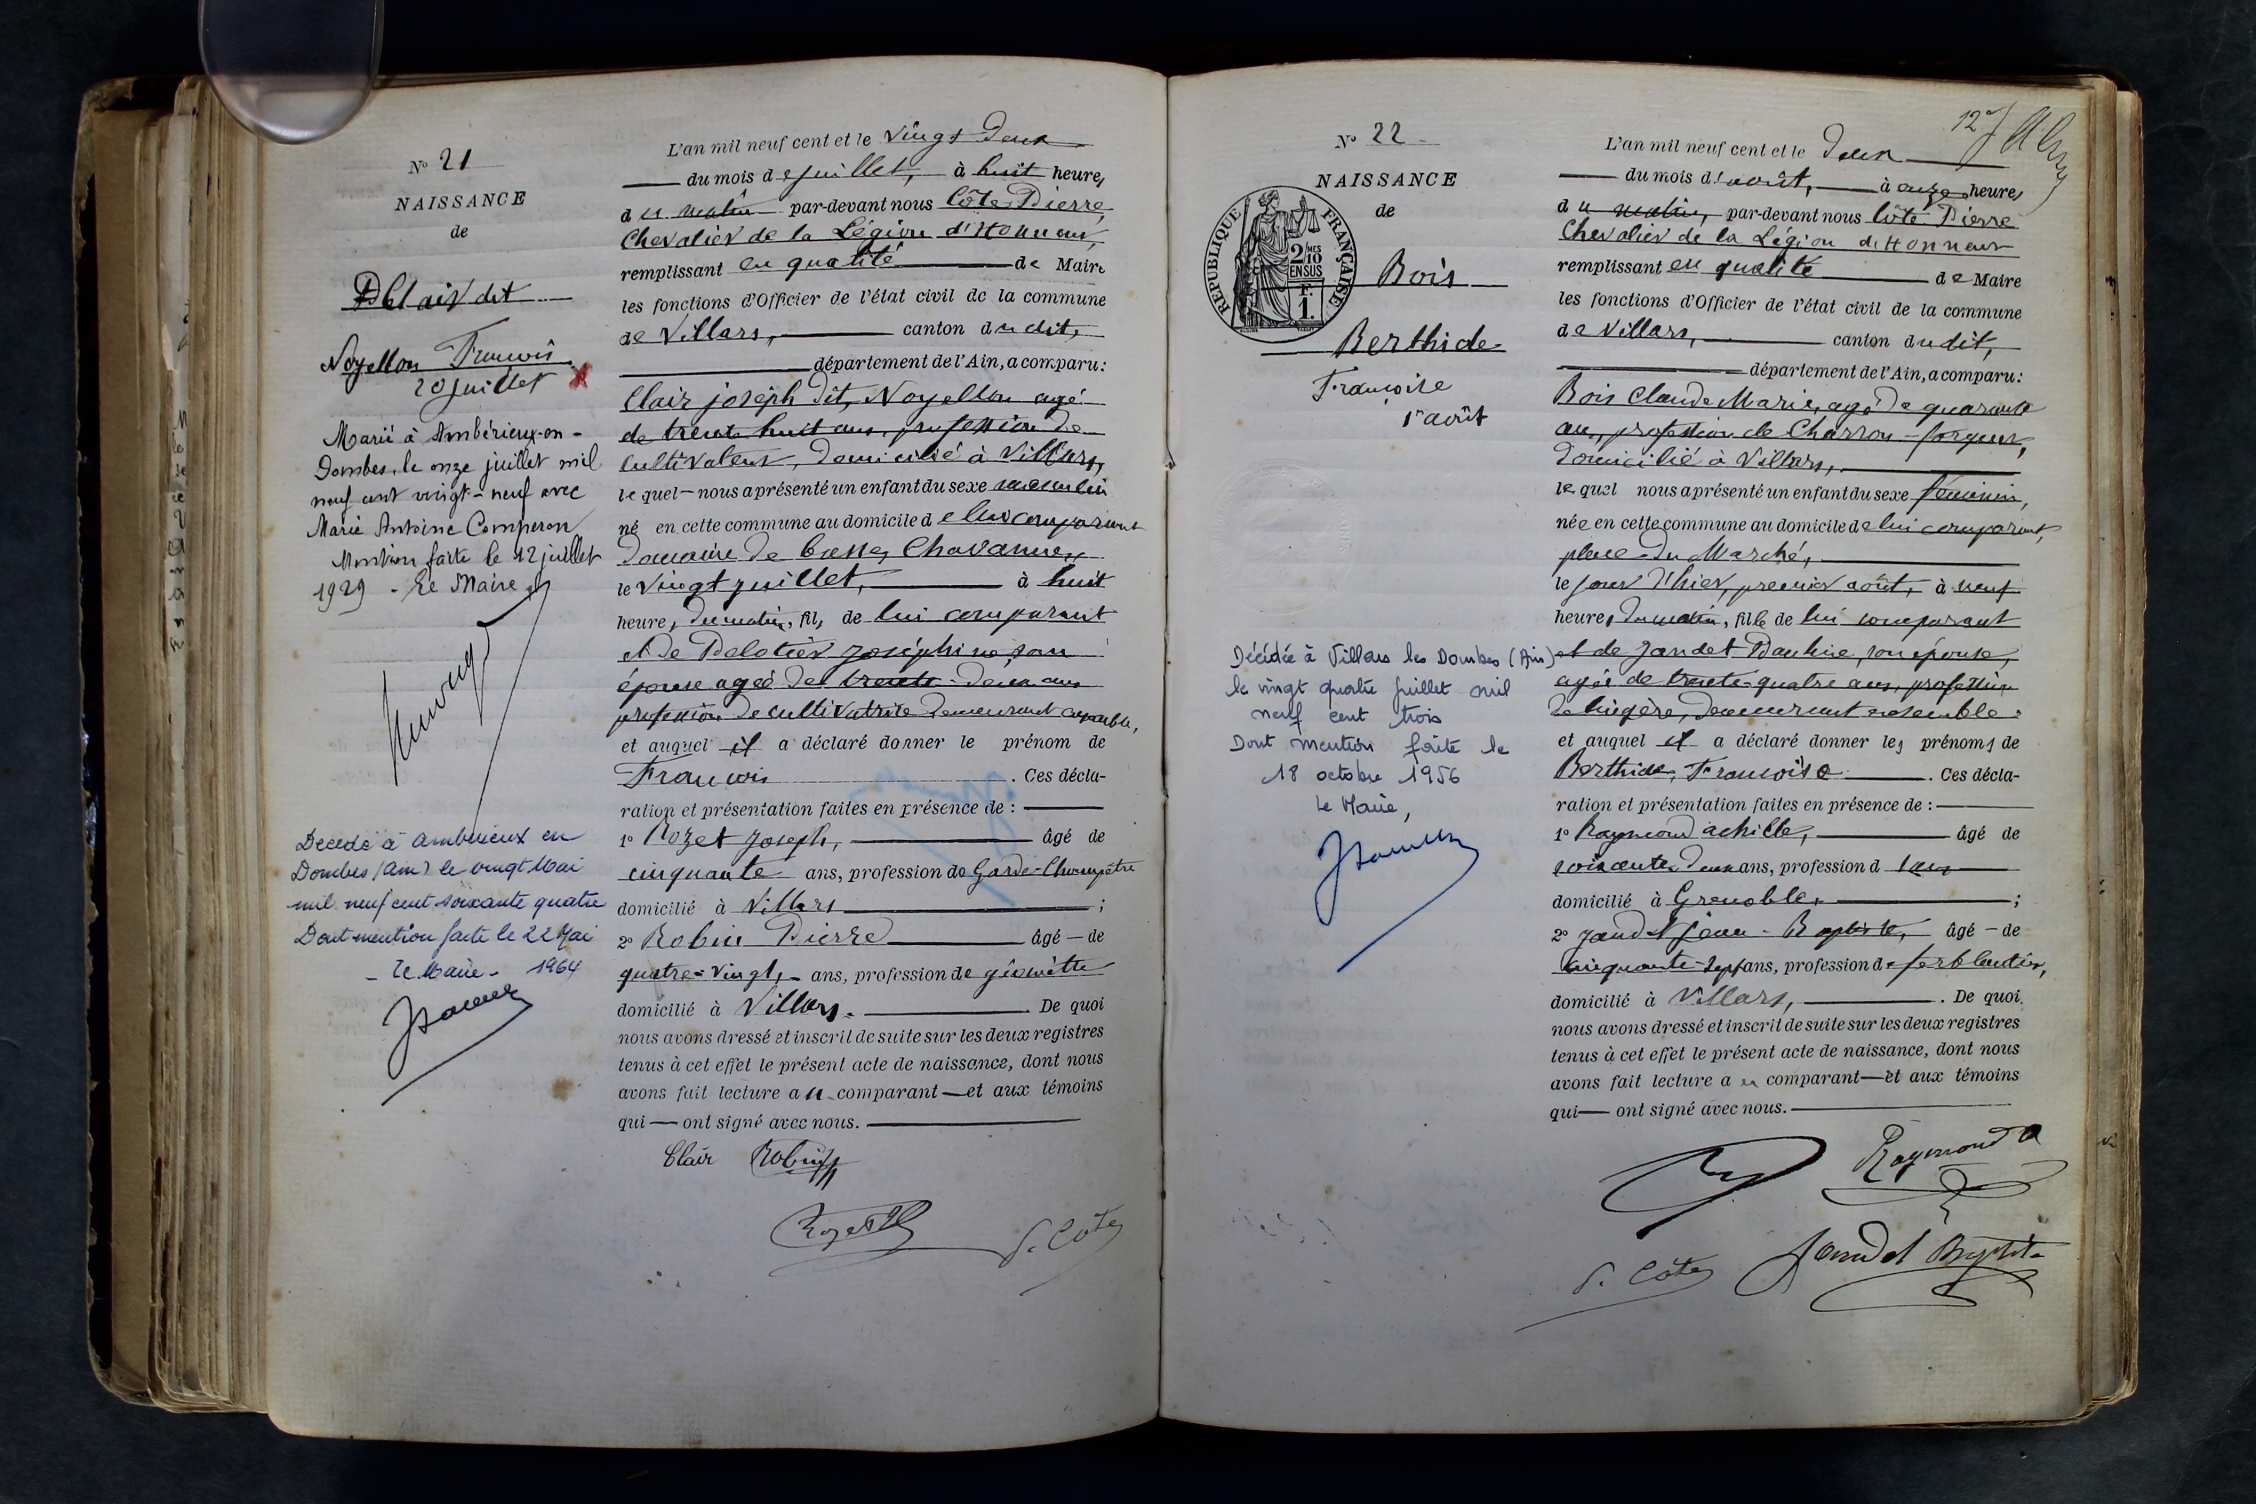 N° 21
NAISSANCE
de
Clair dit
Noyellon François
20 juillet
Marié à Ambérieux-en-
Dombes, le onze juillet mil
neuf cent vingt-neuf avec
Marie Antoine Comperon
Mention faite le 12 juillet
1929 - Le Maire
Décédé à Ambérieux en
Dombes (Ain) le vingt Mai
mil neuf cent soixante quatre
Dont mention faite le 22 Mai
- Le Maire - 1964
L'an mil neuf cent et le vingt deux
du mois de juillet, à huit heures
du matin par-devant nous Côte Pierre,
Chevalier de la Légion d'Honneur,
remplissant en qualité de Maire
les fonctions d'Officier de l'état civil de la commune
de Villars, canton dudit,
département de l'Ain, a comparu:
Clair joseph dit, Noyellon agé
de trente huit ans, profession de
cultivateur, domicilié à Villars,
lequel nous a présenté un enfant du sexe masculin
né en cette commune au domicile de lui comparant
domaine de basses Chavannes
le vingt juillet, à huit
heures du matin, fils de lui comparant
et de Pelletier joséphine, son
épouse agée de trente-deux ans
profession de cultivatrice demeurant ensemble,
et auquel il a déclaré donner le prénom de
François. Ces décla-
ration et présentation faites en présence de :
1° Rozet joseph, âgé de
cinquante ans, profession de Garde-Champêtre
domicilié à Villars ;
2° Robin Pierre âgé de
quatre-vingt, ans, profession de géomètre
domicilié à Villars. De quoi
nous avons dressé et inscrit de suite sur les deux registres
tenus à cet effet le présent acte de naissance, dont nous
avons fait lecture au comparant et aux témoins
qui ont signé avec nous.
Clair Robin
Rozet
P. Côte
N° 22
NAISSANCE
de
RÉPUBLIQUE FRANÇAISE
2/10 MES
EN SUS
F.
1.
Bois
Berthide
Françoise
1er août
Décédée à Villars les Dombes (Ain)
le vingt quatre juillet mil
neuf cent trois
Dont mention faite le
18 octobre 1956
Le Maire,
12
L'an mil neuf cent et le deux
du mois d'août, à onze heures
du matin, par-devant nous Côte Pierre
Chevalier de la Légion d'Honneur
remplissant en qualité de Maire
les fonctions d'Officier de l'état civil de la commune
de Villars, canton dudit,
département de l'Ain, a comparu:
Bois Claude Marie, agé de quarante
ans, profession de Charron-forgeur,
domicilié à Villars,
lequel nous a présenté un enfant du sexe féminin,
née en cette commune au domicile de lui comparant,
place du Marché,
le jour d'hier, premier août, à neuf
heures du matin, fille de lui comparant
et de Jandet Pauline, son épouse,
agée de trente-quatre ans, profession
de lingère, demeurant ensemble.
et auquel il a déclaré donner les prénoms de
Berthide, Françoise. Ces décla-
ration et présentation faites en présence de :
1° Raymond achille, âgé de
soixante deux ans, profession d
domicilié à Grenoble, ;
2° Jandet jean-Baptiste, âgé de
cinquante-sept ans, profession de ferblantier,
domicilié à Villars, . De quoi
nous avons dressé et inscrit de suite sur les deux registres
tenus à cet effet le présent acte de naissance, dont nous
avons fait lecture au comparant et aux témoins
qui ont signé avec nous.
Raymond A
P. Côte
Jandet Baptiste